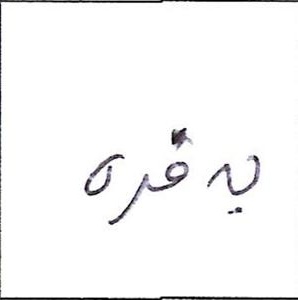 یه قره